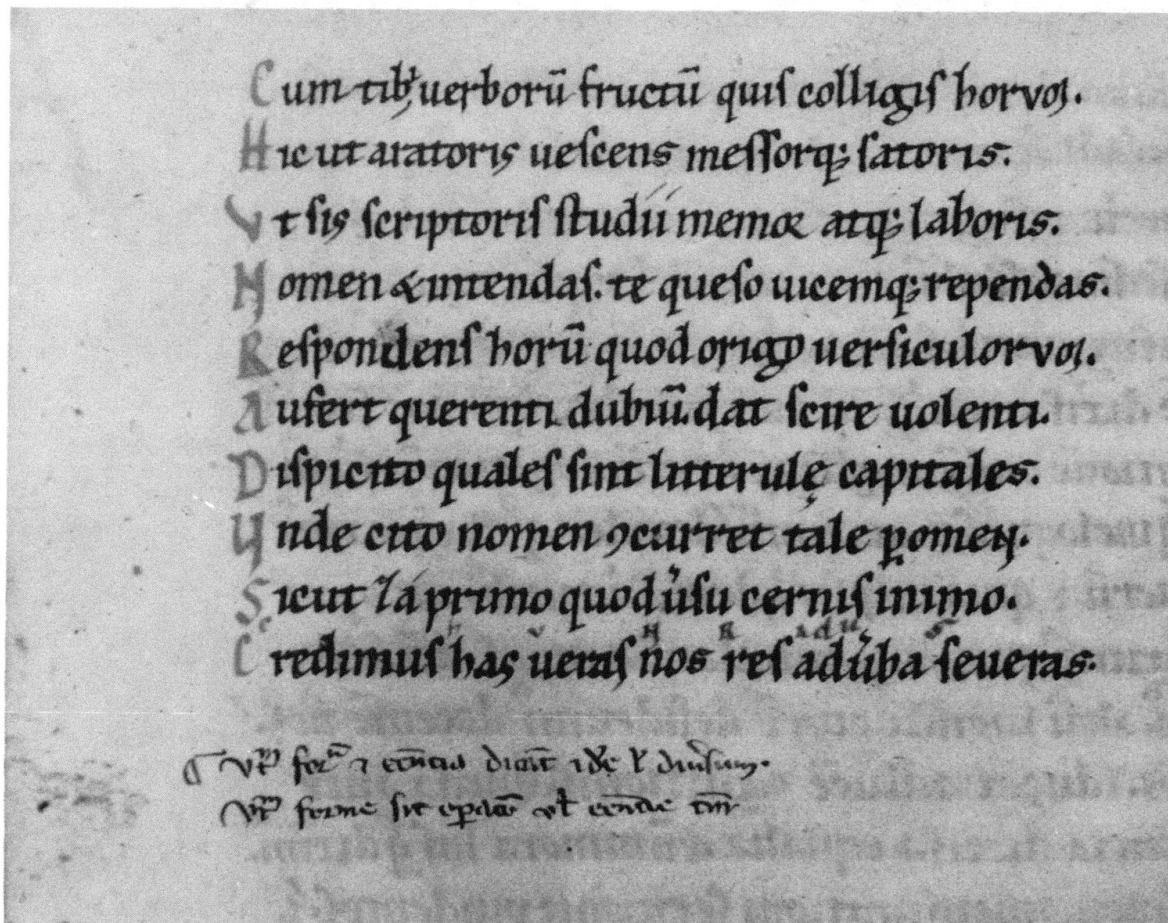 Cum tibi uerborū fructū quis colligis horvꝝ.
Hic ut aratoris uescens messorq; satoris.
Vt sis scriptoris studii memor atq; laboris.
Nomen & intendas. te queso uicemq; rependas.
Respondens horū quod origo uersiculorvꝝ.
Aufert querenti dubiū. dat scire uolenti.
Dispicito quales sint litterulę capitales.
Vnde cito nomen ꝯcurret tale ꝑomen.
Sicut primo quod usu cernis in imo.
Credimus has ueras nos res ad ūba seueras.
c h v N R a d u s
Vtꝝ forᵃ ⁊ dicūt idē ł diuersum.
Vtꝝ forme sit ł